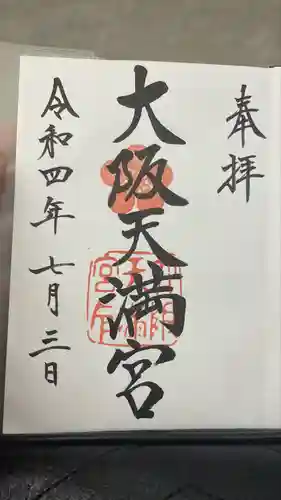 奉拝
大阪天満宮
令和四年七月三日